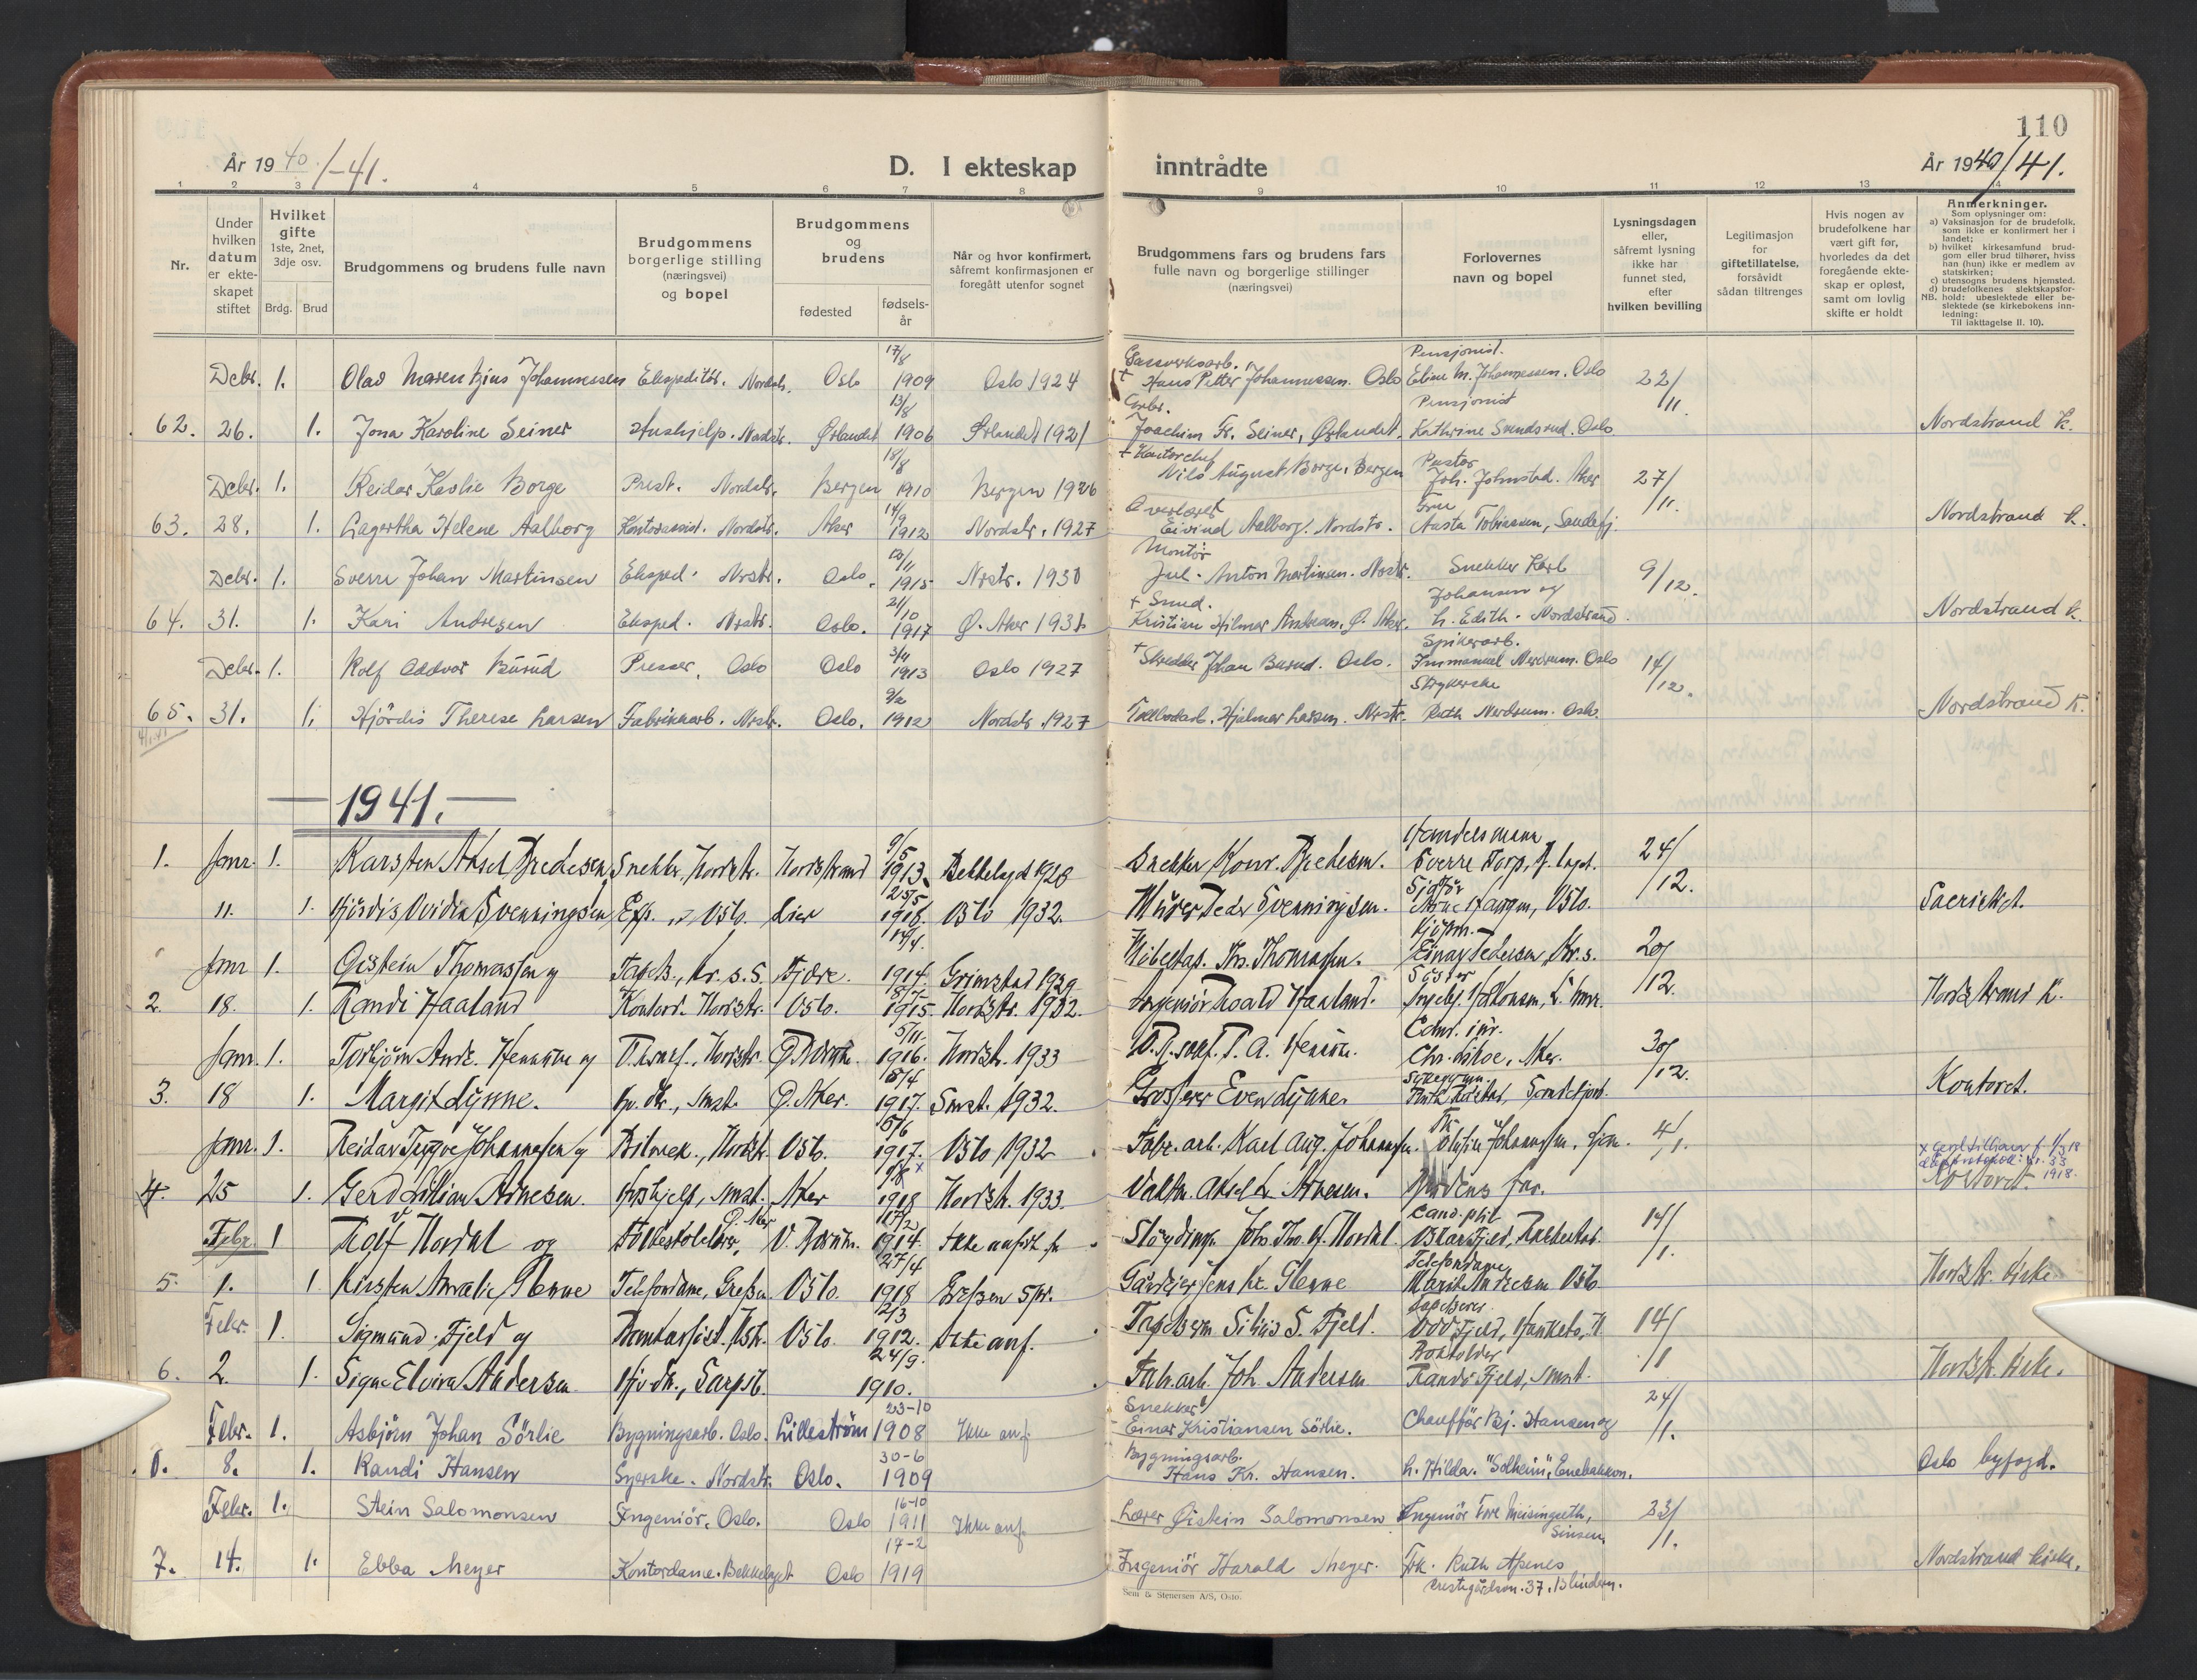 110
År 1940/-41.
D. I ekteskap inntrådte
År 1940/41.
1 2 3 4 5 6 7 8 9 10 11 12 13 14
Nr.
Under hvilken datum er ekteskapet stiftet
Hvilket gifte
1ste, 2net, 3dje osv.
Brdg. Brud
Brudgommens og brudens fulle navn
Brudgommens borgerlige stilling (næringsvei) og bopel
Brudgommens og brudens
fødested
fødselsår
Når og hvor konfirmert, såfremt konfirmasjonen er foregått utenfor sognet
Brudgommens fars og brudens fars fulle navn og borgerlige stillinger (næringsvei)
Forlovernes navn og bopel
Lysningsdagen eller, såfremt lysning ikke har funnet sted, efter hvilken bevilling
Legitimasjon for giftetillatelse, forsåvidt sådan tiltrenges
Hvis nogen av brudefolkene har vært gift før, hvorledes da det foregående ekteskap er opløst, samt om lovlig skifte er holdt
Anmerkninger.
Som oplysninger om:
a) Vaksinasjon for de brudefolk, som ikke er konfirmert her i landet;
b) hvilket kirkesamfund brudgom eller brud tilhører, hviss han (hun) ikke er medlem av statskirken;
c) utensogns brudens hjemsted.
d) brudefolkenes slektskapsforhold: ubeslektede eller beslektede (se kirkebokens innledning:
NB. Til iakttagelse II. 10).
17/8 Gassverksarb. Pensjonist.
Decbr. 1. Olav Marentzius Johannessen Ekspeditør. Nordstr. Oslo 1909 Oslo 1924 + Hans Petter Johannessen. Oslo Eline M. Johannessen. Oslo 22/11.
13/8 Pensjonist
62. 26. 1. Jona Karoline Seiner Hushjelp. Nordstr. Ørlandet 1906 Ørlandet 1921 Joachim Fr. Seiner, Ørlandet. Kathrine Svendsrud. Oslo Nordstrand k.
18/8 + Kontorchef Pastor
Decbr. 1. Reidar Kavlie Borge Prest. Nordstr. Bergen 1910 Bergen 1926 Nils August Borge, Bergen Joh. Johnstad. Aker 27/11.
14/9 Overlærer Fru
63. 28. 1. Lagertha Helene Aalborg Kontorassist. Nordstr. Aker 1912 Nordstr. 1927 Eivind Aalborg. Nordstr. Aasta Tobiassen, Sandefj. Nordstrand k.
Montør
Decbr. 1. Sverre Johan Martinsen Eksped. Nrstr. Oslo. 1915 Nrstr. 1930 Jul. Anton Martinsen. Nrstr. Snekker Karl 9/12.
21/10 + Smed. Johansen og
64. 31. 1. Kari Andresen Eksped. Nrstr. Oslo. 1917 Ø. Aker 1931. Kristian Hilmar Andresen, Ø. Aker. h. Edith. Nordstrand. Nordstrand k.
3/11 Spikerarb.
Decbr. 1. Rolf Oddvar Burud Presser, Oslo Oslo 1913 Oslo 1927 + Skredder Johan Burud. Oslo. Immanuel Nerdrum. Oslo 14/12.
9/2 Strykerske
65. 31. 1. Hjördis Therese Larsen Fabrikkarb. Nrstr. Oslo. 1912 Nordstr. 1927 Tollbodarb. Hjalmar Larsen. Nrstr. Ruth Nerdrum. Oslo. Nordstrand k.
— 1941. —
9/5 Handelsmann
1. Janr. 1. Karsten Aksel Bredesen, Snekker, Nordstr. Nordstrand 1913. Bekkelaget 1928 Snekker Konr. Bredesen. Sverre Torp, B.laget. 24/12.
25/5 Sjåför
11. 1. Hjördis Ovidia Svenningsen Exp. Oslo. Lier 1918. Oslo 1932. Murer Peder Svenningsen. Arne Haugen, Oslo. Sacristiet.
14/4. Kjöpm.
Janr 1. Oistein Thomassen og Tapets., Kr.s.S. Fjære. 1914. Grimstad 1929 Thomassen. Einar Pedersen, Kr.s. 20/12.
2. 18. 1. Randi Haaland Kontord. Nordstr. Oslo. 1915. Nordstr. 1932. Ingeniör Roald Haaland. Nordstrand k.
5/11.
Janr. 1. Torbjörn Andr. Hennum og Nordstr. 1916. Nordstr. 1933 30/12.
15/4
3. 18 1. Margit Lynne. Ø. Aker. 1917. Smst. 1932. Grosserer Even Lynne. Kontoret.
15/6
Janr. 1. Reidar Trygve Johannesen og Bilmek., Nordstr. Oslo. 1917. Oslo 1932 Fabr. arb. Karl Aug. Johannesen. 4/1. x Gerd Lillian f. 1/3 18
4. 25 1. Gerd Lillian Arnesen. Hushjelp, smst. Aker 1918 Nordstr. 1933. Vaktm. Aksel L. Arnesen. Brudens far. Kontoret. 1918.
17/2 Cand. phil
Febr. 1 Rolf Nordal og Folkeskolelærer, Ø. Aker V. Bærum. 1914. Ikke anført Oskar Fjeld, 14/1.
27/4 Telefondame
5. 1. 1 Kirsten Amalie Glenne Telefondame, Grefsen Oslo. 1918 Grefsen spr. Gårdeier Jens Kr. Glenne Marit Andresen Oslo. Nordstr. kirke
12/3 Tapetserer
Febr. 1. Sigmund Fjeld og Oslo. 1912. Ikke anf. Tapetserm. S. Fjeld. Odd Fjeld, 14/1
24/9. Bokholder
6. 2. 1. Signe Elvira Andersen Sarpsb. 1910. Fabr. arb. Joh. Andersen Randi Fjeld, smst. Nordstr. kirke.
23-10 Snekker
Febr. 1. Asbjörn Johan Sörlie Bygningsarb. Oslo. Lilleström 1908 Ikke anf. Einar Kristiansen Sörlie. Chaufför Bj. Hansen og 24/1.
30-6 Bygningsarb.
8. 1. Randi Hansen Syerske. Nordstr. Oslo. 1909 Hans Kr. Hansen. h. Hilda. "Solheim", Enebakkvn. Oslo byfogd.
16-10
Febr. 1. Stein Salomonsen Ingeniör, Oslo. Oslo 1911 Ikke anf. Lærer Øistein Salomonsen Ingeniör Tore Meisingseth, Sinsen 23/1.
17-2
7. 14. 1. Ebba Meyer Kontordame. Bekkelaget Oslo 1919 Ingeniör Harald Meyer. Frk. Ruth Apenes Nordstrand kirke.
Prestegårdsvn. 37. Blindern.
Sem & Stenersen A/S, Oslo.